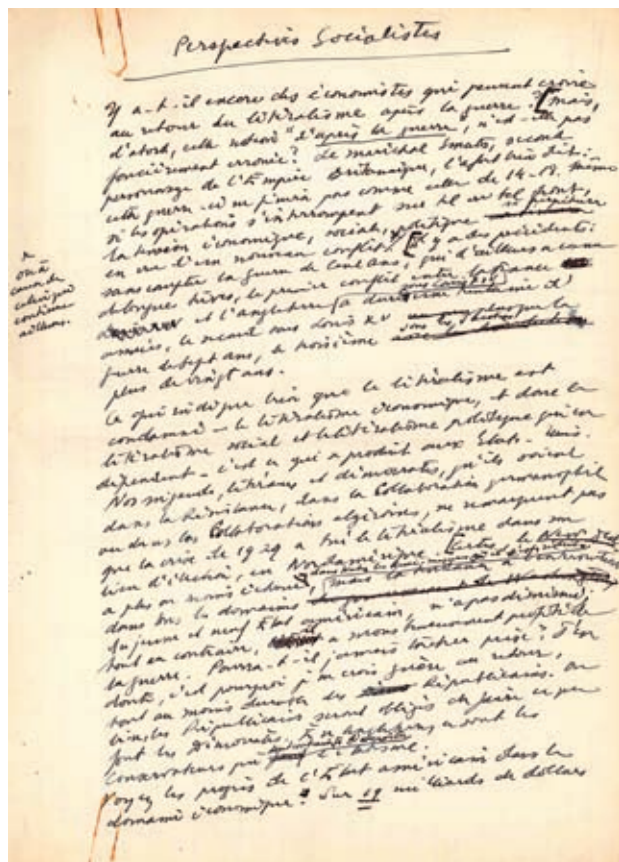 Perspectives Socialistes
Y a-t-il encore des économistes qui peuvent croire
au retour du libéralisme après la guerre ? Mais,
d'abord, cette notion "d'après la guerre", n'est-elle pas
foncièrement erronée ? Le maréchal Smuts, second
personnage de l'Empire Britannique, l'a fort bien dit :
cette guerre-ci ne finira pas comme celle de 14-18. Même
si les opérations s'interrompent sur tel ou tel front,
la tension économique, sociale, politique
en vue d'un nouveau conflit. Il y a des précédents :
sans compter la guerre de Cent ans, qui d'ailleurs a connu
de longues trêves, le premier conflit entre la France
sous Louis XIV
et l'Angleterre a duré
années, le second sous Louis XV
guerre de Sept ans, le troisième
plus de vingt ans.
continue
ailleurs.
Ce qui indique bien que le libéralisme est
condamné - le libéralisme économique, et donc le
libéralisme social et le libéralisme politique qui en
dépendent - c'est ce qui a produit aux Etats-Unis.
Nos migrands, libéraux et démocrates, qu'ils soient
dans la Résistance, dans la Collaboration germanophile
ou dans les Collaborations algéroises, ne remarquent pas
que la crise de 1929 a tué le libéralisme dans son
lieu d'élection, en Nordamérique. Certes, le New Deal
a plus ou moins échoué, mais
dans tous les domaines
du jeune et neuf Etat américain, n'a pas diminué ;
tout au contraire, a monstrueusement profité de
la guerre. Pourra-t-il jamais lâcher prise ? J'en
doute, c'est pourquoi je ne crois guère au retour,
tout au moins durable des Républicains. Ou
bien les Républicains seront obligés de faire ce que
font les Démocrates. En Angleterre, ce sont les
conservateurs qui
Voyez les progrès de l'Etat américain dans le
domaine économique : Sur 19 milliards de dollars